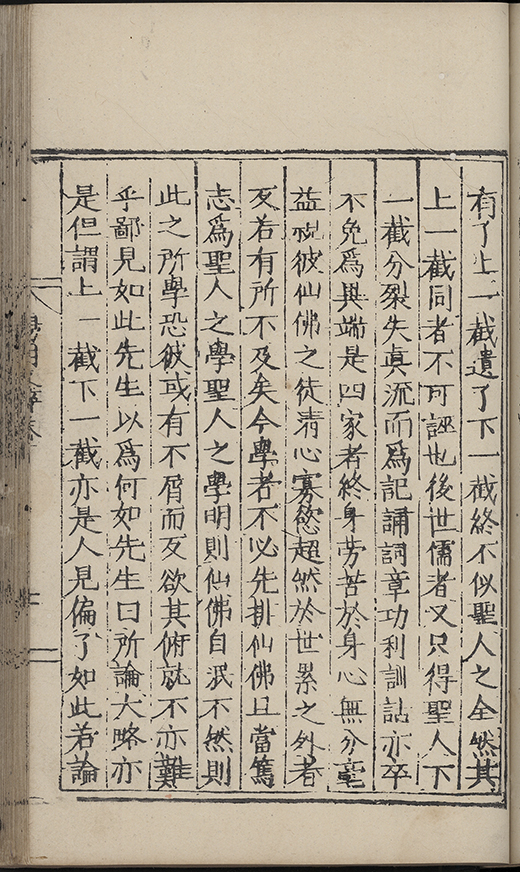 有了上一截遺了下一截終不似聖人之全然其
上一截同者不可誣也後世儒者又只得聖人下
一截分裂失真流而為記誦詞章功利訓詁亦卒
不免為異端是四家者終身劳苦於身心無分毫
益視彼仙佛之徒清心寡慾超然於世累之外者
反若有所不及矣今學者不必先排仙佛且當篤
志為聖人之學聖人之學明則仙佛自泯不然則
此之所學恐彼或有不屑而反欲其俯就不亦難
乎鄙見如此先生以為何如先生曰所論大略亦
是但謂上一截下一截亦是人見偏了如此若論